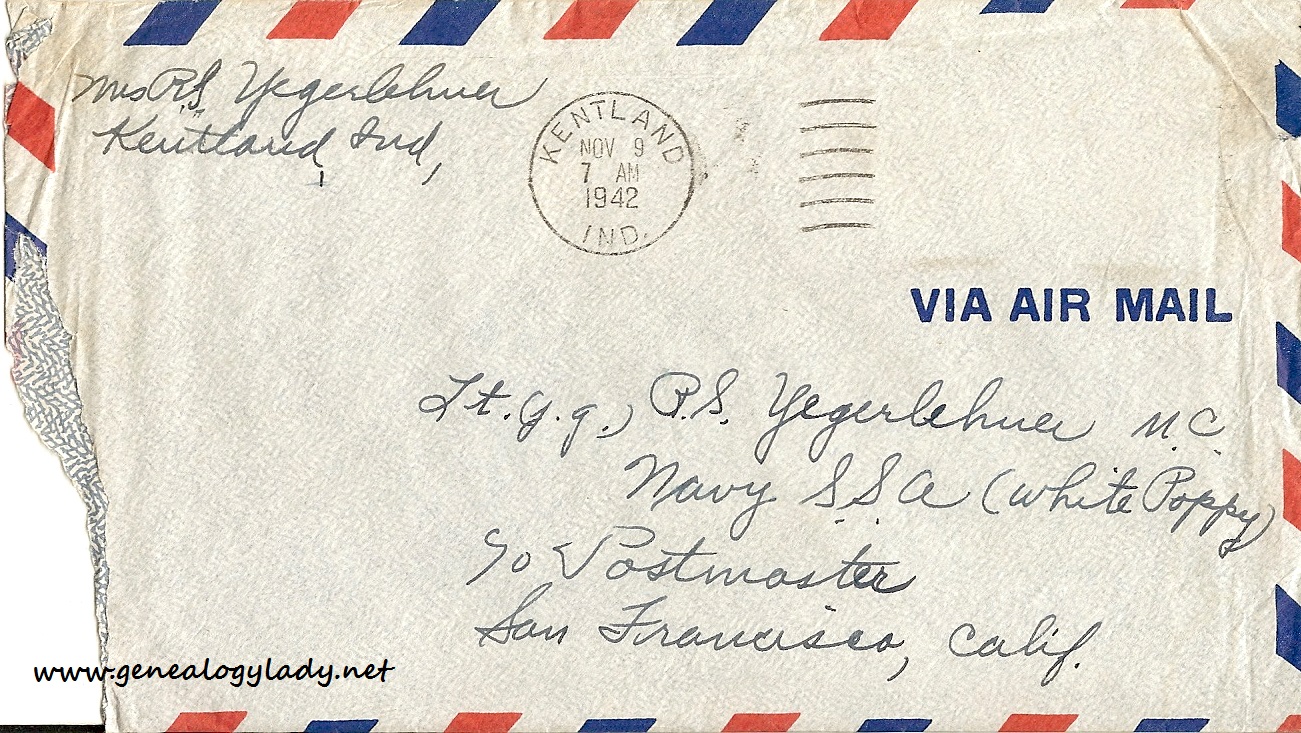 Mrs R.S. Yegerlehner
Kentland, Ind,
KENTLAND
NOV 9
7 AM
1942
IND.
VIA AIR MAIL
Lt. (j.g.), R.S. Yegerlehner M.C.
Navy S.S.A (White Poppy)
c/o Postmaster
San Francisco, Calif.
www.genealogylady.net